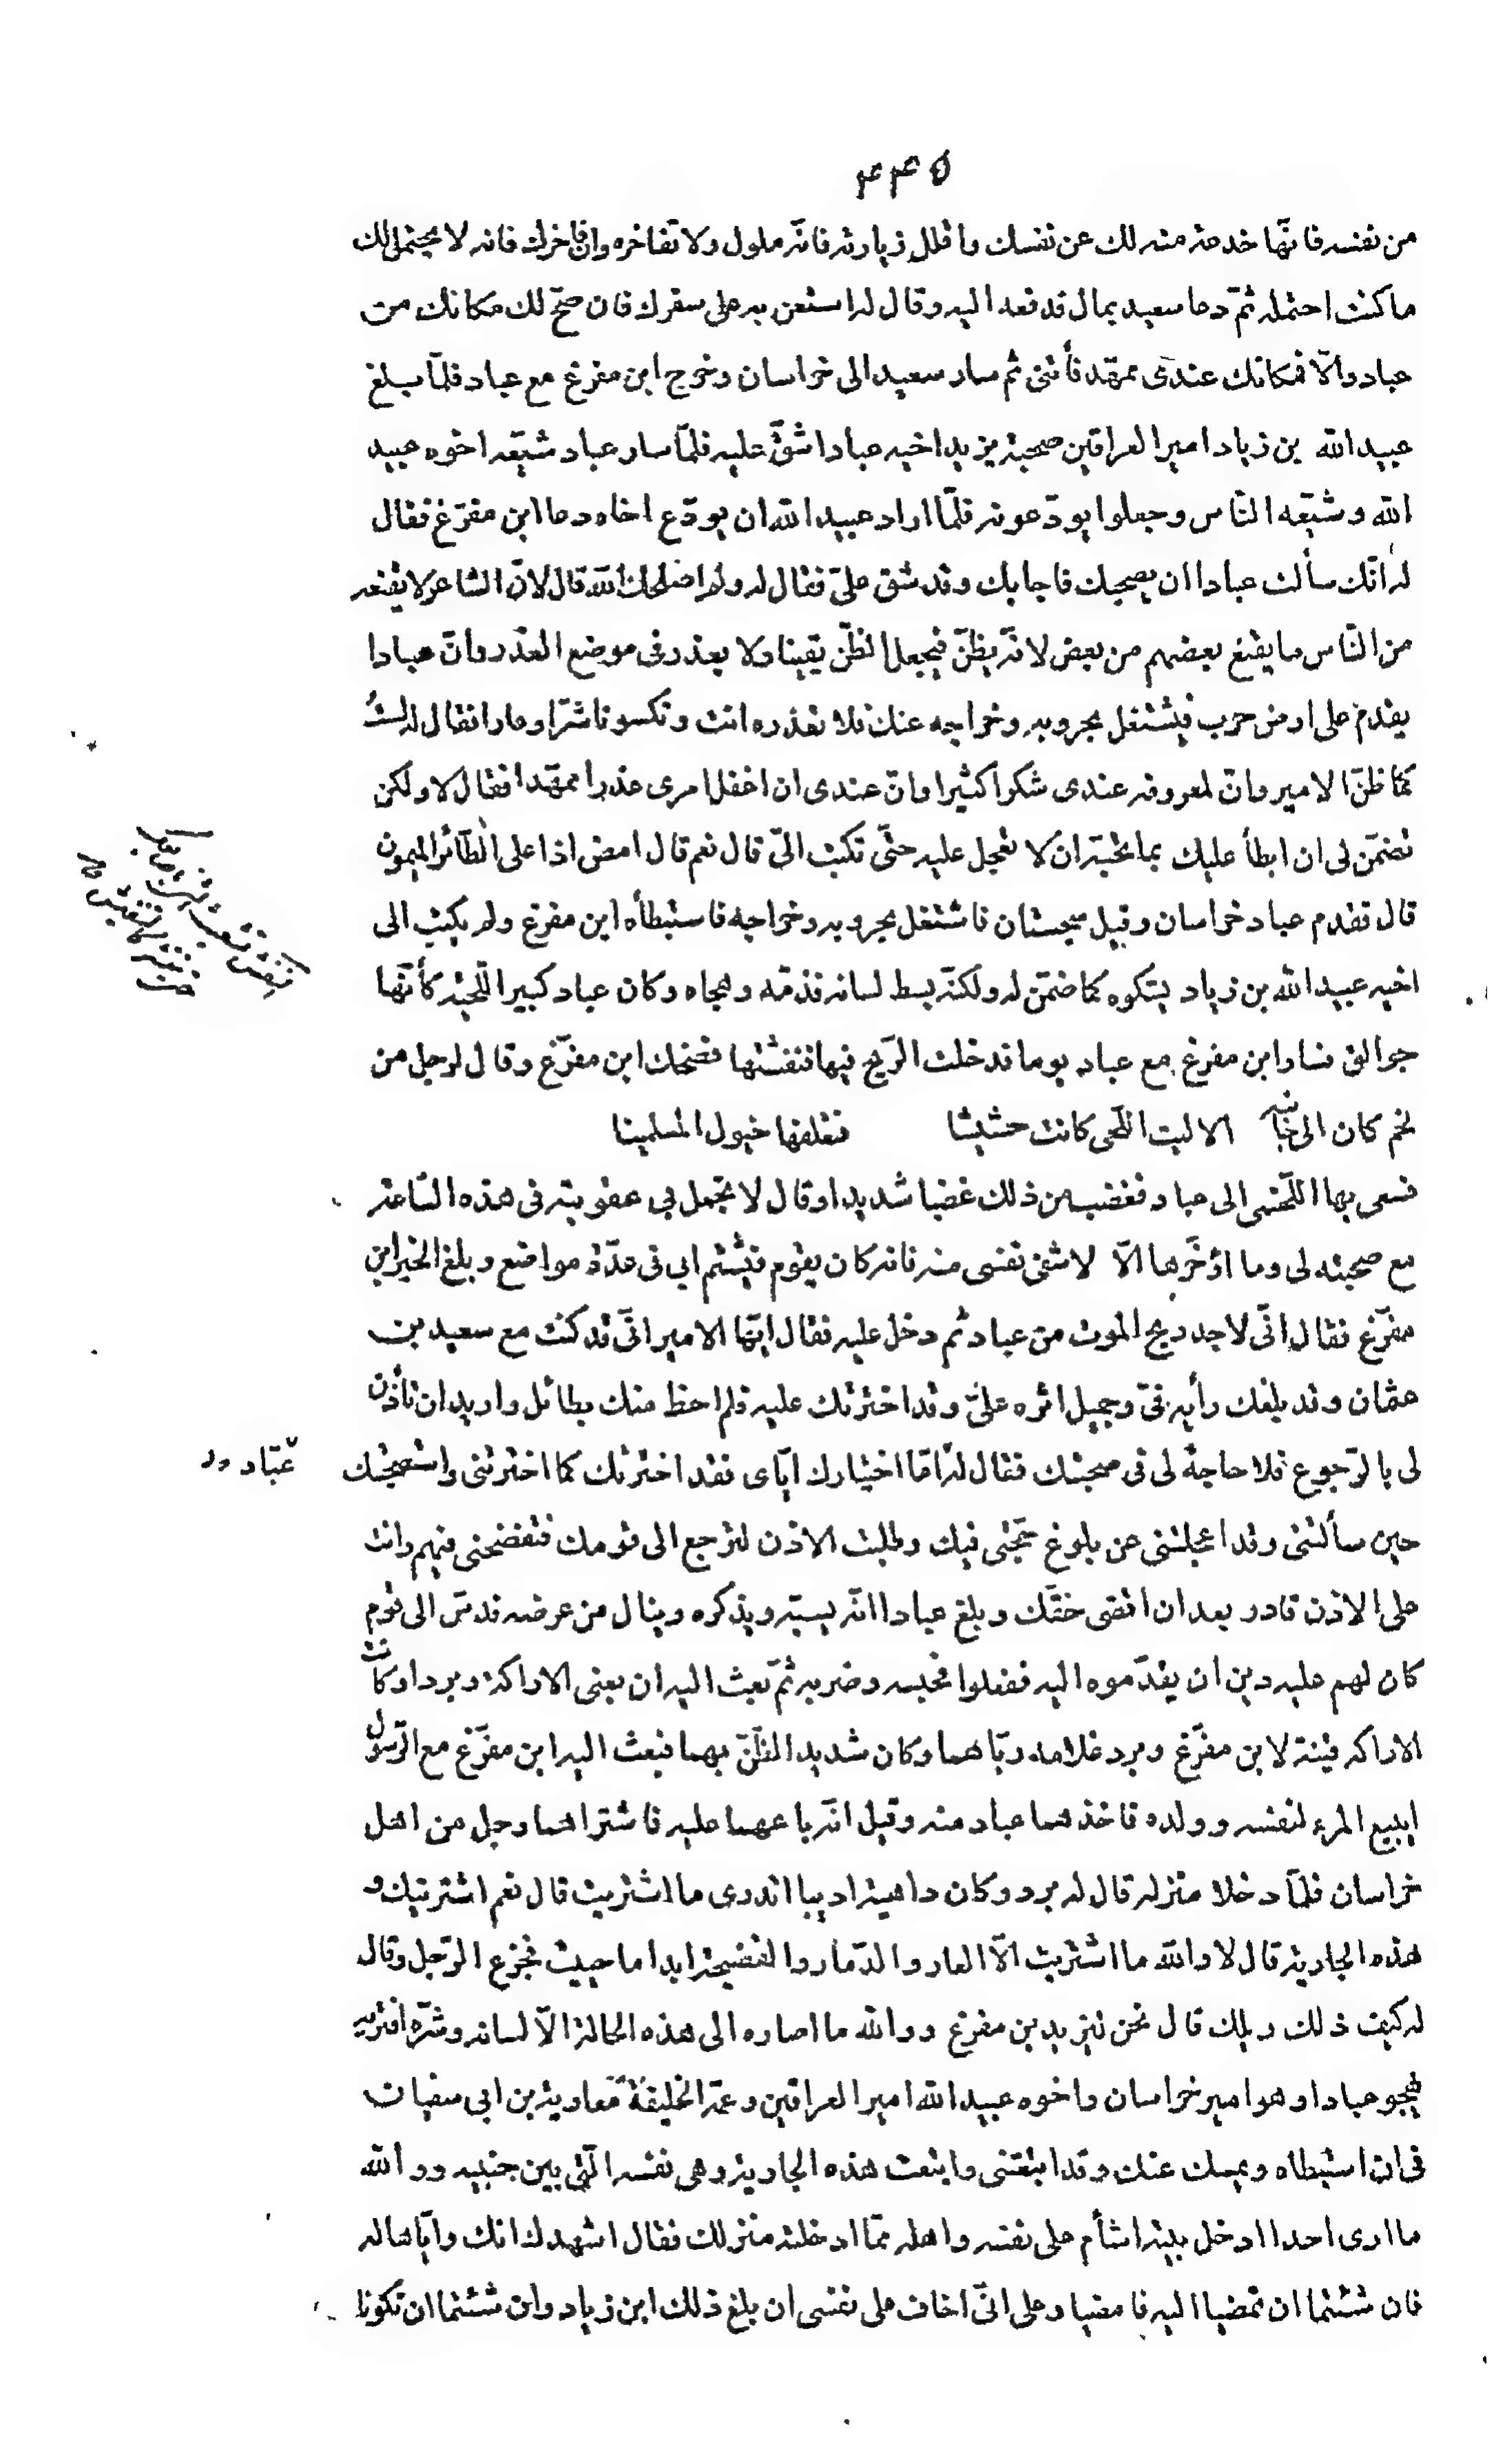 ٤٤٥
من نفسه فانّها خدعة منه لك عن نفسك واقلل زيارته فانّه ملول ولا تفاخره وان فاخرك فانه لا يحتمل لك
ما كنت احتمله ثمّ دعا سعيد بمال فدفعه اليه وقال له استعن به على سفرك فان صحّ لك مكانك من
عباد والّا فمكانك عندى ممهّد فأتنى ثم سار سعيد الى خراسان وخرج ابن مفرغ مع عباد فلمّا بلغ
عبيد الله بن زياد امير العراقين صحبة يزيد اخيه عبادا شقّ عليه فلمّا سار عباد شيّعه اخوه عبيد
الله وشيّعه النّاس وجعلوا يودّعونه فلمّا اراد عبيد الله ان يودّع اخاه دعا ابن مفرّغ فقال
له انّك سألت عبادا ان يصحبك فاجابك وقد شق علىّ فقال له ولم اصلحك الله قال لانّ الشاعر لا يقنعه
من النّاس ما يقنع بعضهم من بعض لانّه يظنّ فيجعل الظنّ يقينا ولا يعذر فى موضع العذر وانّ عبادا
يقدم على ارض حرب فيشتغل بحروبه وخراجه عنك فلا تعذره انت وتكسونا شرّا وعارا فقال له لستُ
كما ظنّ الامير وانّ لمعروفه عندى شكرا كثيرا وانّ عندى ان اغفل امرى عذرا ممهّدا فقال لا ولكن
تضمّن لى ان ابطأ عليك بما تحبّه ان لا تعجل عليه حتّى تكتب الىّ قال نعم قال امض اذا على الطّائر الميمون
قال فقدم عباد خراسان وقيل سجستان فاشتغل بحروبه وخراجه فاستبطأه ابن مفرّغ ولم يكتب الى
اخيه عبيد الله بن زياد يشكوه كما ضمّن له ولكنّه بسط لسانه فذمّه وهجاه وكان عباد كبير اللّحية كأنّها
جوالق فسار ابن مفرغ مع عباد يوما فدخلت الرّيح فيها فنفشتها فضحك ابن مفرّغ وقال لرجل من
لخم كان الى جانبه الا ليت اللّحى كانت حشيشا فنعلفها خيول المسلمينا
فسعى بها اللّخمى الى عباد فغضب من ذلك غضبا شديدا وقال لا تجمل بى عقوبته فى هذه السّاعة
مع صحبته لى وما اؤخّرها الّا لاشفى نفسى منه فانه كان يقوم فيشتم ابى فى عدّة مواضع وبلغ الخبر ابن
مفرّغ فقال انّى لاجد ريح الموت من عباد ثم دخل عليه فقال ايّها الامير انّى قد كنت مع سعيد بن
عثمان وقد بلغك رأيه فىّ وجميل اثره علىّ وقد اخترتك عليه فلم احظ منك بطائل واريد ان تأذن
لى بالرّجوع فلا حاجة لى فى صحبتك فقال له امّا اختيارك ايّاى فقد اخترتك كما اخترتنى واستصحبتك
عبّاد
حين سألتنى وقد اعجلتنى عن بلوغ محبّتى فيك وطلبت الاذن لترجع الى قومك فتفضحنى فيهم وانت
على الاذن قادر بعد ان اقضى حقّك وبلغ عبادا انّه يسبّه ويذكره وينال من عرضه فدسّ الى قوم
كان لهم عليه دين ان يقدّموه اليه ففعلوا فحبسه وضربه ثمّ بعث اليه ان بعنى الاراكة وبردا وكانت
الاراكه قينة لابن مفرّغ وبرد غلامه ربّاهما وكان شديد الضّنّ بهما فبعث اليه ابن مفرّغ مع الرّسول
ايبيع المرء لنفسه وولده فاخذهما عباد منه وقيل انّه باعهما عليه فاشتراهما رجل من اهل
خراسان فلمّا دخلا منزله قال له برد وكان داهية اديبا اتدرى ما اشتريت قال نعم اشتريتك و
هذه الجارية قال لا والله ما اشتريت الّا العار والدّمار والفضيحة ابدا ما حييت فجزع الرّجل وقال
له كيف ذلك ويلك قال نحن ليزيد بن مفرغ ووالله ما اصاره الى هذه الحالة الّا لسانه وشرّه افتريه
يهجو عبادا وهو امير خراسان واخوه عبيد الله امير العراقين وعمّه الخليفة معاوية بن ابى سفيان
فى ان استبطاه ويمسك عنك وقد ابتعتنى وابتعت هذه الجارية وهى نفسه الّتى بين جنبيه ووالله
ما ارى احدا ادخل بيته اشأم على نفسه واهله ممّا ادخلته منزلك فقال اشهدك انك وايّاها له
فان شئتما ان تمضيا اليه فامضيا وعلى انّى اخاف على نفسى ان بلغ ذلك ابن زياد وان شئتما ان تكونا